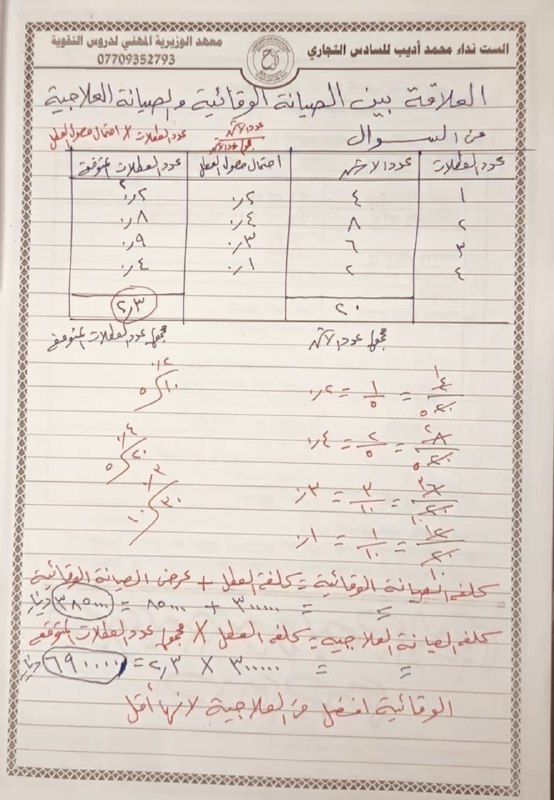 الست نداء محمد أديب للسادس التجاري
معهد الوزيرية المهني لدروس التقوية
07709352793
العلاقة بين الصيانة الوقائية والصيانة العلاجية
من السؤال
عدد الاشهر
مجموع عدد الاشهر
عدد العطلات × احتمال حصول العطل
عدد العطلات عدد الاشهر احتمال حصول العطل عدد العطلات المتوقعة
١ ٤ ٠,٢ ٠,٢
٢ ٨ ٠,٤ ٠,٨
٣ ٦ ٠,٣ ٠,٩
٤ ٢ ٠,١ ٠,٤
٢٠ ٢,٣
مجموع عدد الاشهر مجموع عدد العطلات المتوقعة
٤/٢٠ = ١/٥ = ٠,٢
٨/٢٠ = ٢/٥ = ٠,٤
٦/٢٠ = ٣/١٠ = ٠,٣
٢/٢٠ = ١/١٠ = ٠,١
٠,٢
٥ ١٠
٠,٤
٥ ٢٠
٠,٣
١٠ ٣٠
كلفة الصيانة الوقائية = كلفة العطل + عرض الصيانة الوقائية
= = ٣٠٠٠٠٠ + ٨٥٠٠٠ = ٣٨٥٠٠٠ دينار
كلفة الصيانة العلاجية = كلفة العطل × مجموع عدد العطلات المتوقعة
= = ٣٠٠٠٠٠ × ٢,٣ = ٦٩٠٠٠٠ دينار
الوقائية افضل من العلاجية لانها أقل